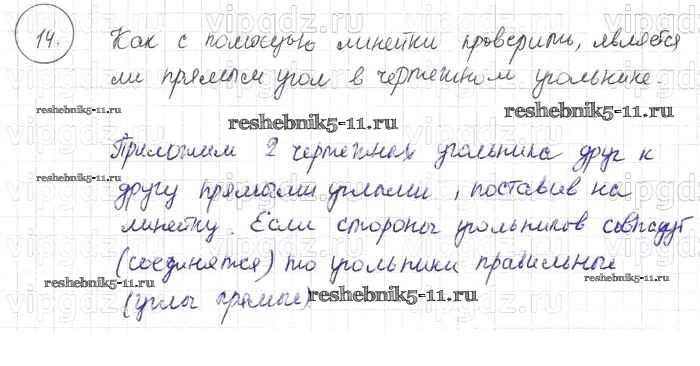 14. Как с помощью линейки проверить, является
ли прямым угол в чертежном угольнике.
reshebnik5-11.ru reshebnik5-11.ru
reshebnik5-11.ru
Приложим 2 чертежных угольника друг к
reshebnik5-11.ru
другу прямыми углами, поставив на
линейку. Если стороны угольников совпадут
(соединятся) то угольники правильные
reshebnik5-11.ru reshebnik5-11.ru
(углы прямые) reshebnik5-11.ru
vipgdz.ru